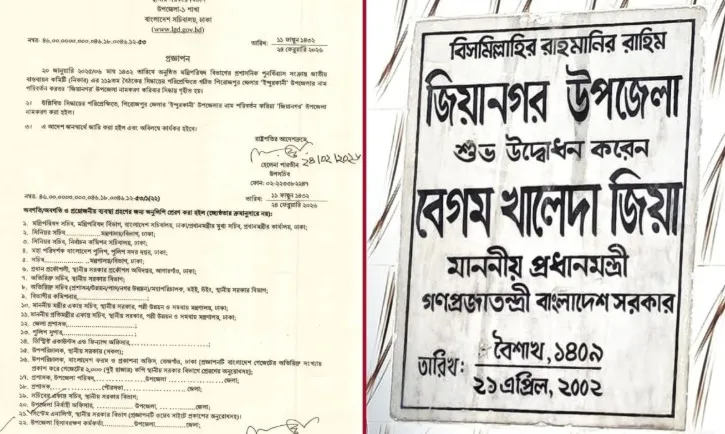 উপজেলা-১ শাখা
বাংলাদেশ সচিবালয়, ঢাকা
(www.lgd.gov.bd)
নম্বর: ৪৬.০০.০০০০.০০০.০৪৬.১৮.০০৪৬.১২-৫৩
তারিখ: ১১ ফাল্গুন ১৪৩২
২৪ ফেব্রুয়ারি ২০২৬
প্রজ্ঞাপন
২০ জানুয়ারি ২০২৬/০৬ মাঘ ১৪৩২ তারিখে অনুষ্ঠিত মন্ত্রিপরিষদ বিভাগের প্রশাসনিক পুনর্বিন্যাস সংক্রান্ত জাতীয়
বাস্তবায়ন কমিটি (নিকার) এর ১১৯তম বৈঠকের সিদ্ধান্তের পরিপ্রেক্ষিতে গঠিত পিরোজপুর জেলার 'ইন্দুরকানী' উপজেলার নাম
পরিবর্তন করতঃ 'জিয়ানগর' উপজেলা নামকরণ করিবার সিদ্ধান্ত গৃহীত হয়।
২। উল্লিখিত সিদ্ধান্তের পরিপ্রেক্ষিতে, পিরোজপুর জেলার 'ইন্দুরকানী' উপজেলার নাম পরিবর্তন করিয়া 'জিয়ানগর' উপজেলা
নামকরণ করা হইল।
৩। এ আদেশ জনস্বার্থে জারি করা হইল এবং অবিলম্বে কার্যকর হইবে।
রাষ্ট্রপতির আদেশক্রমে
24/02/2026
হেলেনা পারভীন
উপসচিব
ফোন: ০২-২২৩৩৮২২৪৭
নম্বর: ৪৬.০০.০০০০.০০০.০৪৬.১৮.০০৪৬.১২-৫৩/১(২২)
তারিখ: ১১ ফাল্গুন ১৪৩২
২৪ ফেব্রুয়ারি ২০২৬
অবগতি/অবগতি ও প্রয়োজনীয় ব্যবস্থা গ্রহণের জন্য অনুলিপি প্রেরণ করা হইল (জ্যেষ্ঠতার ক্রমানুসারে নহে):
১. মন্ত্রিপরিষদ সচিব, মন্ত্রিপরিষদ বিভাগ, বাংলাদেশ সচিবালয়, ঢাকা/প্রধানমন্ত্রীর মুখ্য সচিব, প্রধানমন্ত্রীর কার্যালয়, ঢাকা;
২. সিনিয়র সচিব, মন্ত্রণালয়/বিভাগ, ঢাকা;
৩. সিনিয়র সচিব, নির্বাচন কমিশন সচিবালয়, ঢাকা;
৪. মহা পরিদর্শক বাংলাদেশ পুলিশ, পুলিশ সদর দপ্তর, ঢাকা;
৫. সচিব, মন্ত্রণালয়/বিভাগ, ঢাকা;
৬. প্রধান প্রকৌশলী, স্থানীয় সরকার প্রকৌশল অধিদপ্তর, আগারগাঁও, ঢাকা;
৭. অতিরিক্ত সচিব, স্থানীয় সরকার বিভাগ;
৮. অতিরিক্ত সচিব স্থানীয় সরকার বিভাগ;
৯. বিভাগীয় কমিশনার,
১০. মাননীয় মন্ত্রীর একান্ত সচিব, স্থানীয় সরকার, পল্লী উন্নয়ন ও সমবায় মন্ত্রণালয়, ঢাকা;
১১. মাননীয় প্রতিমন্ত্রীর একান্ত সচিব, স্থানীয় সরকার, পল্লী উন্নয়ন ও সমবায় মন্ত্রণালয়, ঢাকা;
১২. জেলা প্রশাসক,
১৩. পুলিশ সুপার,
১৪. ডিস্ট্রিক্ট একাউন্টস এন্ড ফিন্যান্স অফিসার,
১৫. উপপরিচালক, স্থানীয় সরকার (সকল);
১৬. উপপরিচালক, বাংলাদেশ ফরম ও প্রকাশনা অফিস, তেজগাঁও, ঢাকা (প্রজ্ঞাপনটি বাংলাদেশ গেজেটের অতিরিক্ত সংখ্যায়
প্রকাশ করে গেজেটের ২,০০০ (দুই হাজার) কপি স্থানীয় সরকার বিভাগে প্রেরণের অনুরোধসহ);
১৭. প্রশাসক, উপজেলা পরিষদ, উপজেলা, জেলা;
১৮. প্রশাসক, পৌরসভা, জেলা;
১৯. সচিবের একান্ত সচিব, স্থানীয় সরকার বিভাগ;
২০. উপজেলা নির্বাহী অফিসার, উপজেলা, জেলা;
২১. সিস্টেম এনালিস্ট, স্থানীয় সরকার বিভাগ (প্রজ্ঞাপনটি ওয়েব সাইটে প্রকাশের অনুরোধসহ)।
২২. উপজেলা হিসাবরক্ষণ কর্মকর্তা, উপজেলা, জেলা।
বিসমিল্লাহির রাহমানির রাহিম
জিয়ানগর উপজেলা
শুভ উদ্বোধন করেন
বেগম খালেদা জিয়া
মাননীয় প্রধানমন্ত্রী
গণপ্রজাতন্ত্রী বাংলাদেশ সরকার
তারিখ: বৈশাখ, ১৪০৯
২১ এপ্রিল, ২০০২